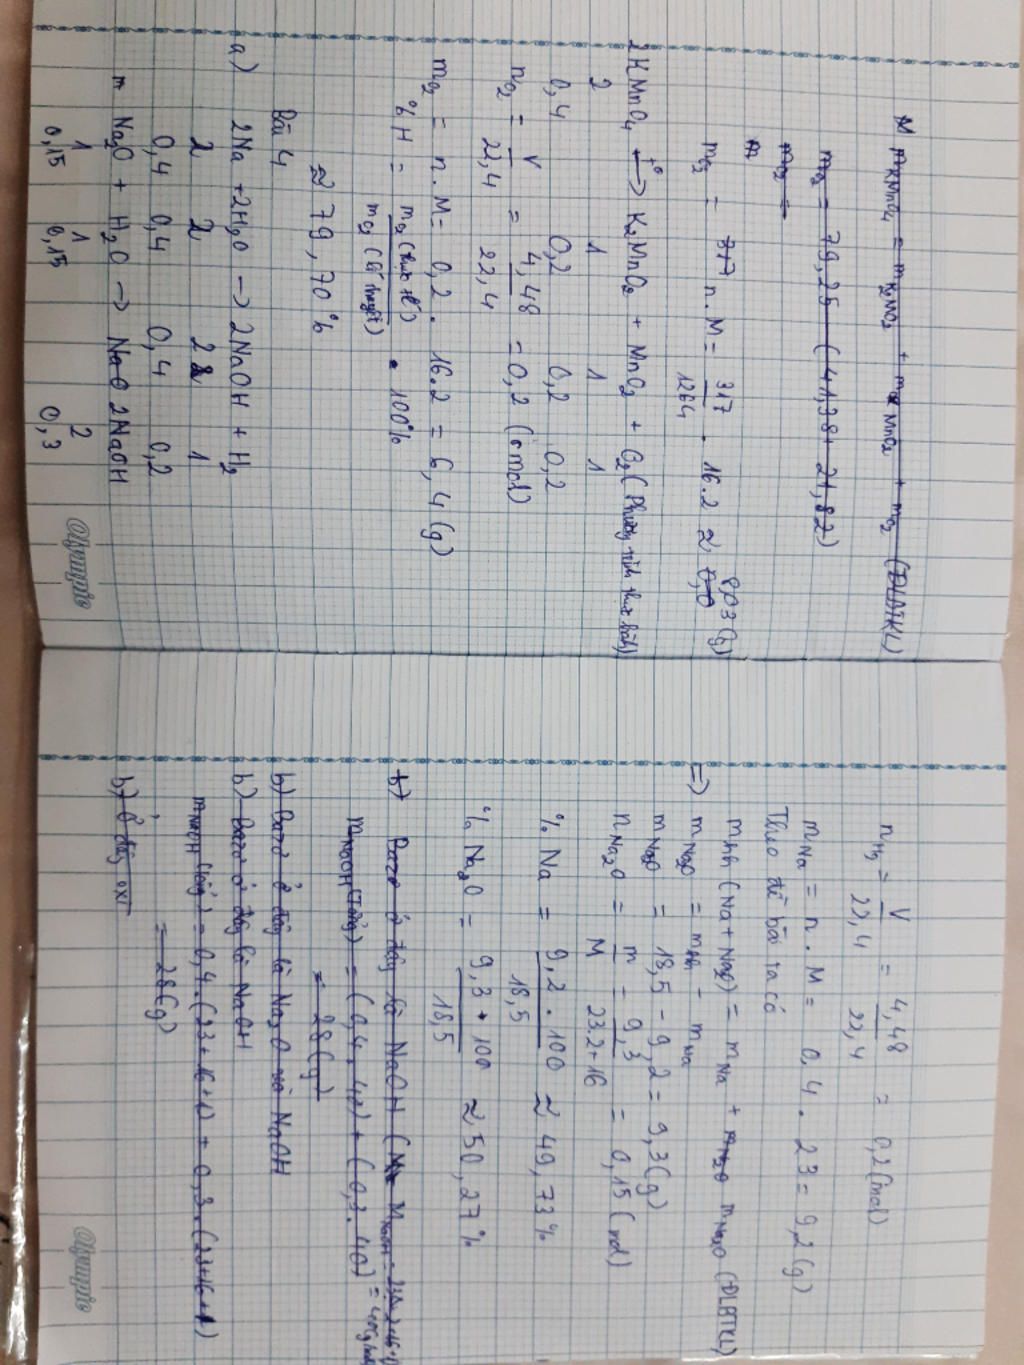 m KMnO₄ = m K₂MnO₂ + m MnO₂ + m O₂ (ĐLBTKL)
m O₂ = 79,25 - (41,38 + 21,82)
m O₂ =
m O₂ = 317 n . M = 317/1264 . 16.2 ≈ 0,0 8,03 (g)
2KMnO₄ ⟷ t° K₂MnO₂ + MnO₂ + O₂ (Phương trình thực hành)
2 1 1 1
0,4 0,2 0,2 0,2
n O₂ = V/22,4 = 4,48/22,4 = 0,2 (mol)
m O₂ = n . M = 0,2 . 16.2 = 6,4 (g)
% H = m O₂ (thực tế) / m O₂ (lí thuyết) . 100%
≈ 79,70 %
Bài 4
a) 2Na + 2H₂O → 2NaOH + H₂
2 2 2 1
0,4 0,4 0,4 0,2
m Na₂O + H₂O → NaO 2NaOH
1 1 2
0,15 0,15 0,3
Olympic
n H₂ = V/22,4 = 4,48/22,4 = 0,2 (mol)
m Na = n . M = 0,4 . 23 = 9,2 (g)
Theo đề bài ta có
m hh (Na + Na₂O) = m Na + m H₂O m Na₂O (ĐLBTKL)
=> m Na₂O = m hh - m Na
m Na₂O = 18,5 - 9,2 = 9,3 (g)
n Na₂O = m/M = 9,3/23.2+16 = 0,15 (mol)
% Na = 9,2 . 100/18,5 ≈ 49,73 %
% Na₂O = 9,3 * 100/18,5 ≈ 50,27 %
b) Bazơ ở đây là NaOH
m NaOH (Tổng) = (0,4 . 40) + (0,3 . 40)
= 28 (g)
b) Bazơ ở đây là Na₂O và NaOH
b) Bazơ ở đây là NaOH
m NaOH (tổng) = 0,4 . (23+16+1) + 0,3 . (23+16+1)
= 28 (g)
b) Ở đây oxi
Olympic